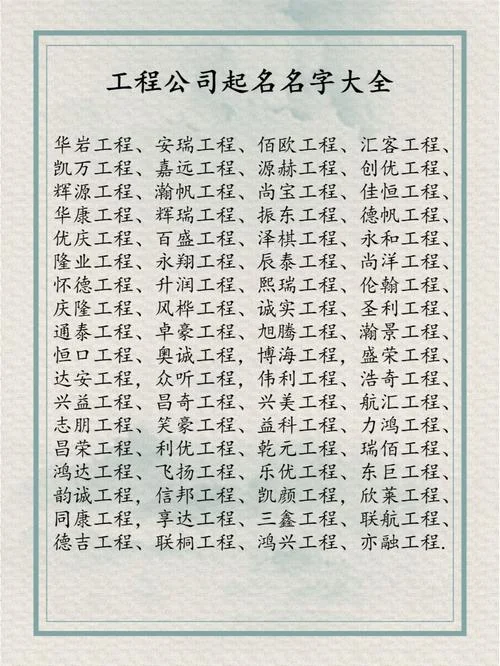 工程公司起名名字大全
华岩工程、安瑞工程、佰欧工程、汇客工程、
凯万工程、嘉远工程、源赫工程、创优工程、
辉源工程、瀚帆工程、尚宝工程、佳恒工程、
华康工程、辉瑞工程、振东工程、德帆工程、
优庆工程、百盛工程、泽棋工程、永和工程、
隆业工程、永翔工程、辰泰工程、尚洋工程、
怀德工程、升润工程、熙瑞工程、伦翰工程、
庆隆工程、风桦工程、诚实工程、圣利工程、
通泰工程、卓豪工程、旭腾工程、瀚景工程、
恒口工程、奥诚工程，博海工程，盛荣工程、
达安工程，众听工程，伟利工程、浩奇工程、
兴益工程、昌奇工程、兴美工程、航汇工程、
志朋工程、笑豪工程、益科工程、力鸿工程、
昌荣工程、利优工程、乾元工程、瑞佰工程、
鸿达工程、飞扬工程、乐优工程、东巨工程、
韵诚工程，信邦工程、凯颜工程，欣莱工程、
同康工程，享达工程、三鑫工程、联航工程、
德吉工程、联桐工程、鸿兴工程、亦融工程.